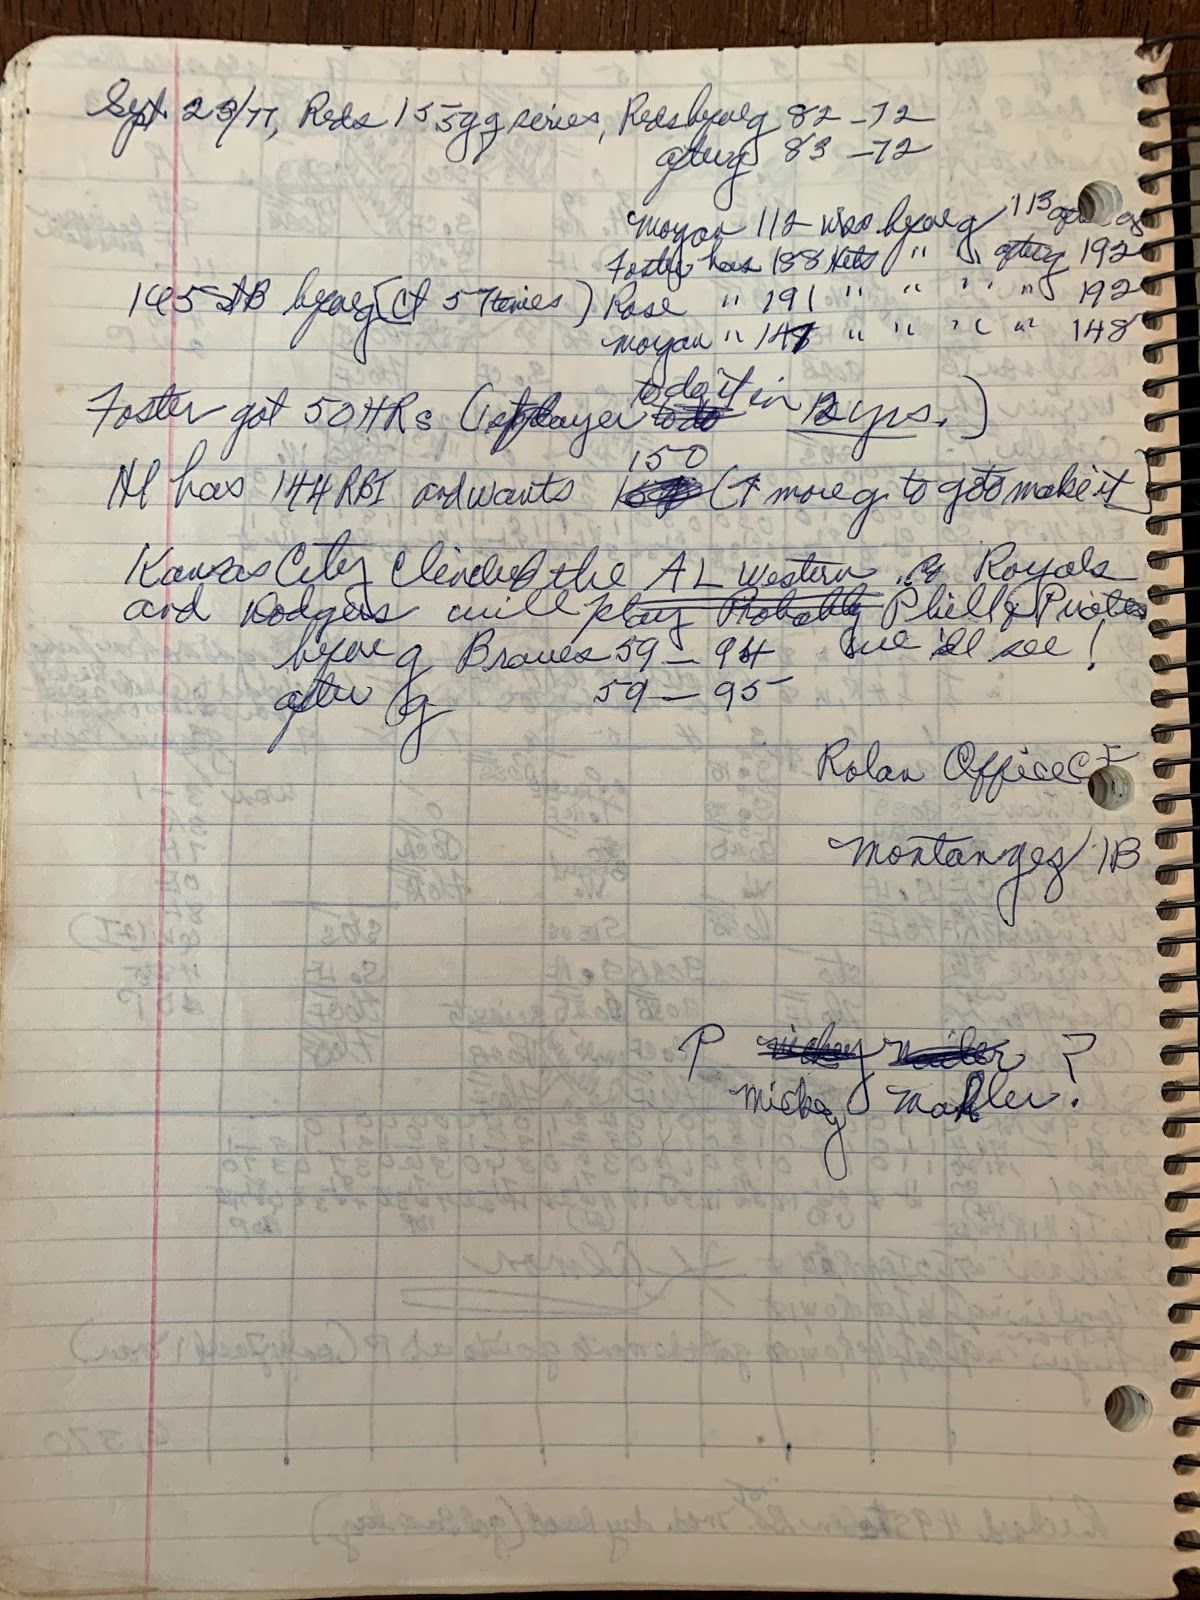 Sept. 23/77, Reds 155g g series, Reds before g 82 - 72
after g 83 - 72
Morgan 112 was before g 113 after g
Foster has 188 Hits " " after g 192
145 SB before g (Ct 57 times) Rose " 191 " " " " 192
Morgan " 147 " " " " 148
Foster got 50 HRs (1st player to do it in 12 yrs.)
He has 144 RBI and wants 150 (7 more g. to go to make it)
Kansas City Clinched the AL Western. Royals
and Dodgers will play Probably Phill & Pirates
before g Braves 59 - 94 we'll see!
after g 59 - 95
Rolan Office CF
Montangez 1B
P ?
Micky Mahler?